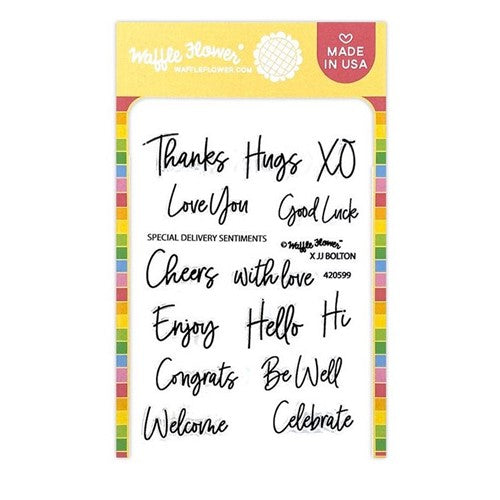 Waffle Flower
WAFFLEFLOWER.COM
MADE
IN USA
Thanks Hugs XO
Love You Good Luck
SPECIAL DELIVERY SENTIMENTS
© Waffle Flower
X JJ BOLTON
420599
Cheers with love
Enjoy Hello Hi
Congrats Be Well
Welcome Celebrate